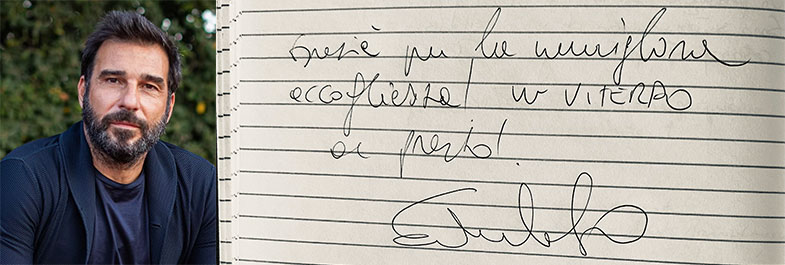 Grazie per la meravigliosa
accoglienza! W VITERBO
a presto!